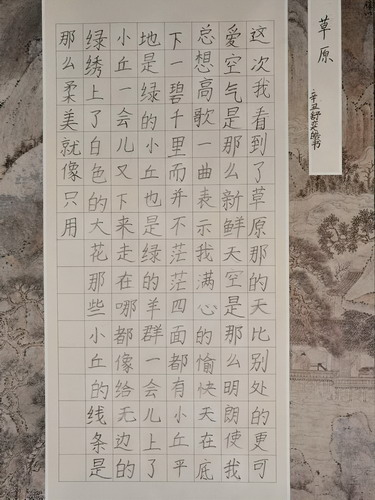 草原
这次我看到了草原那的天比别处的更可
愛空气是那么新鲜天空是那么明朗使我
总想高歌一曲表示我满心的愉快天在底
下一碧千里而并不茫茫四面都有小丘平
地是绿的小丘也是绿的羊群一会儿上了
小丘一会儿又下来走在哪都像给无边的
绿绣上了白色的大花那些小丘的线条是
那么柔美就像只用